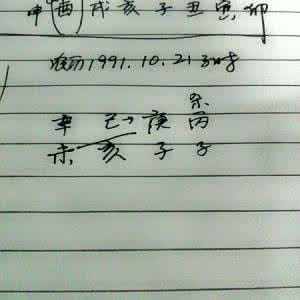 申酉戌亥子丑寅卯
农历1991.10.21子时
杀
辛己→庚丙
未亥子子